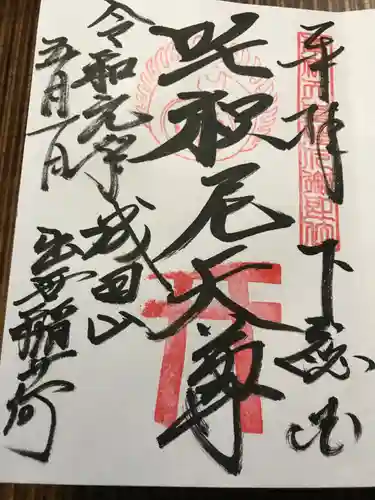 奉拝 下総国
吒枳尼天尊
成田山
出世稲荷
令和元年
五月一日